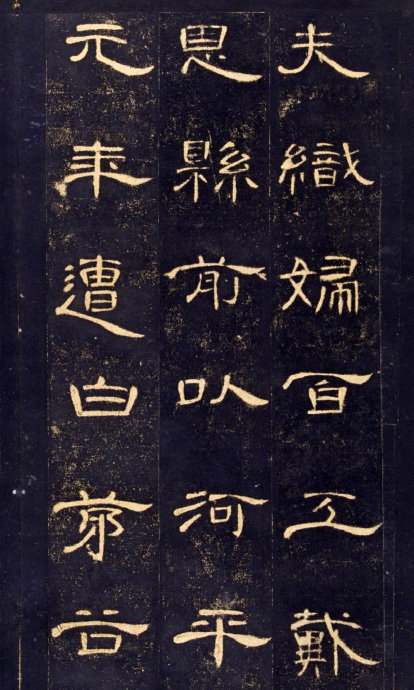 夫織婦百工戴
恩縣前以河平
元年遭白茅谷